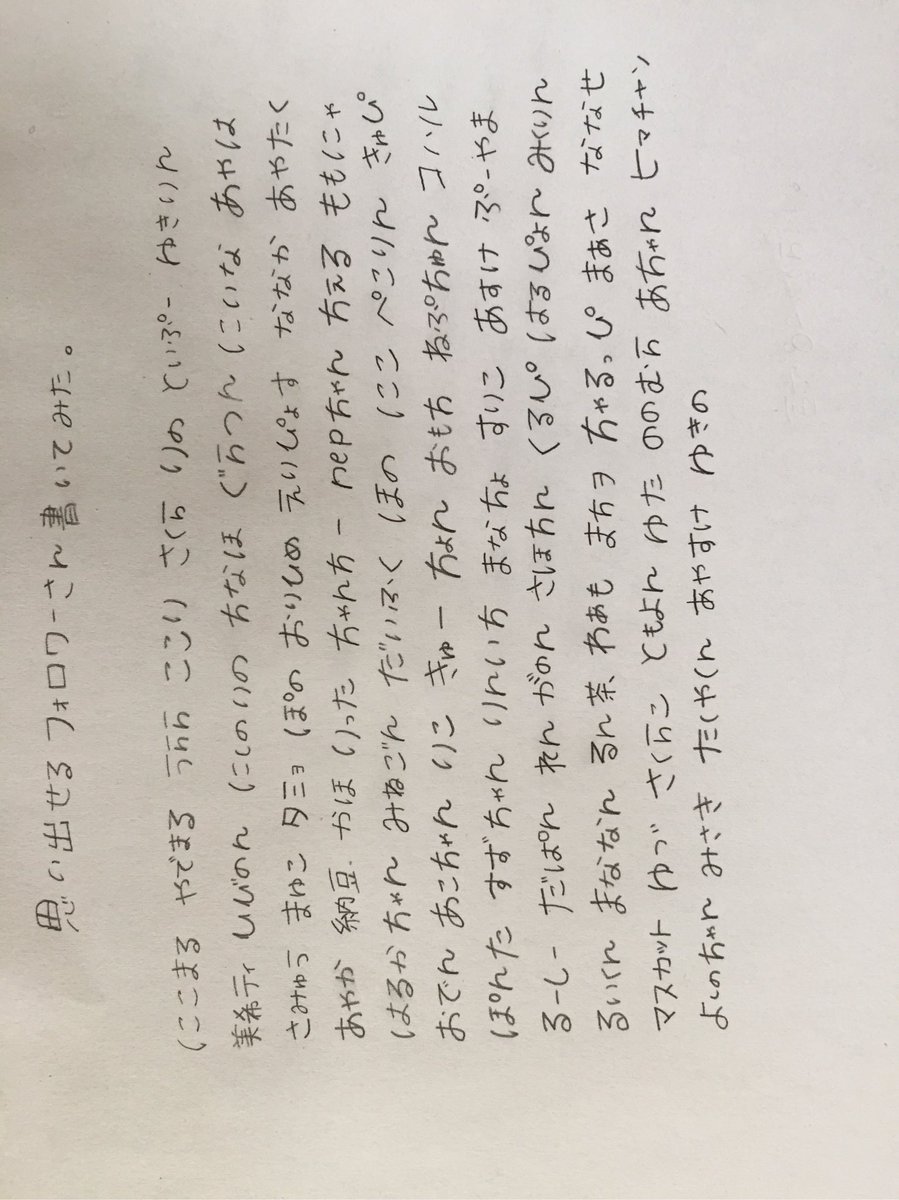 思い出せるフォロワーさん書いてみた。
にこまる やでまる うらら ここり さくら りの といぷー ゆきりん
美希ティ しじのん にしのりの ちなほ ぐらつん にいな あやは
さみゅう まゅこ タミョ ぽの おりひめ えいぴょす ななか あやたく
あやか 納豆 かほ りった ちゃんちー nepちゃん ちぇる ももにゃ
はるかちゃん みねごん だいふく ほの にこ ぺこりん きゅぴ
おでん あこちゃん りこ きゅー ちょん おもち ねぷちゅん コノソル
ぽんた すずちゃん りんいち まなちょ すりこ あすけ ぷーやま
るーしー だぱん れん がのん さほちん くるぴ はるぴょん みくりん
るいくん まななん るん茶 わあも まちヲ ちゃるっぴ まあさ ななせ
マスカット ゆづ さくらこ ともよん ゆた ののむら あちゃん ヒマチャン
よしのちゃん みさき たくやくん あやすけ ゆきの